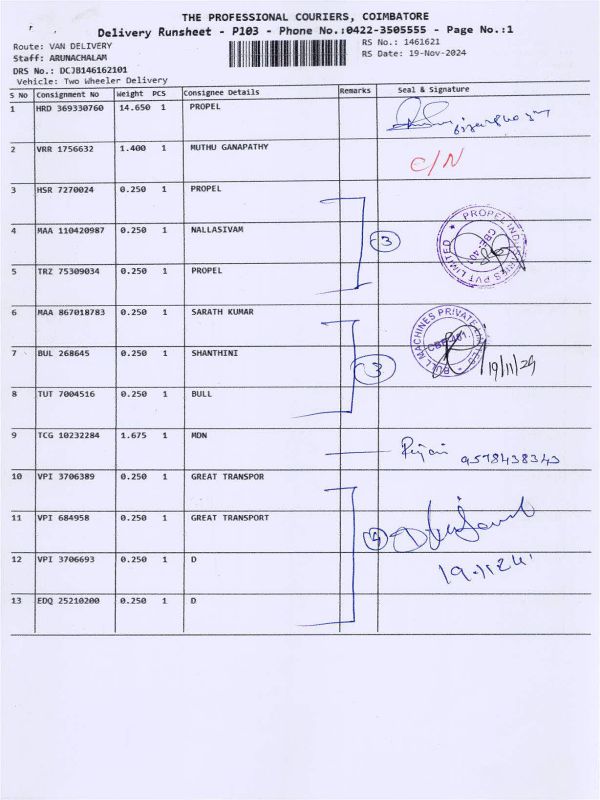 THE PROFESSIONAL COURIERS, COIMBATORE
Delivery Runsheet - P103 - Phone No.:0422-3505555 - Page No.:1
Route: VAN DELIVERY
RS No.: 1461621
Staff: ARUNACHALAM
RS Date: 19-Nov-2024
DRS No.: DCJB146162101
Vehicle: Two Wheeler Delivery
S No Consignment No Weight PCS Consignee Details Remarks Seal & Signature
1 HRD 369330760 14.650 1 PROPEL
2 VRR 1756632 1.400 1 MUTHU GANAPATHY C/N
3 HSR 7270024 0.250 1 PROPEL
4 MAA 110420987 0.250 1 NALLASIVAM 3
PROPEL INDUSTRIES PVT LIMITED
5 TRZ 75309034 0.250 1 PROPEL
6 MAA 867018783 0.250 1 SARATH KUMAR
BULL MACHINES PRIVATE LIMITED
7 BUL 268645 0.250 1 SHANTHINI 3 19/11/24
8 TUT 7004516 0.250 1 BULL
9 TCG 10232284 1.675 1 MDN 9578438343
10 VPI 3706389 0.250 1 GREAT TRANSPOR
11 VPI 684958 0.250 1 GREAT TRANSPORT 4
12 VPI 3706693 0.250 1 D 19.11.24
13 EDQ 25210200 0.250 1 D